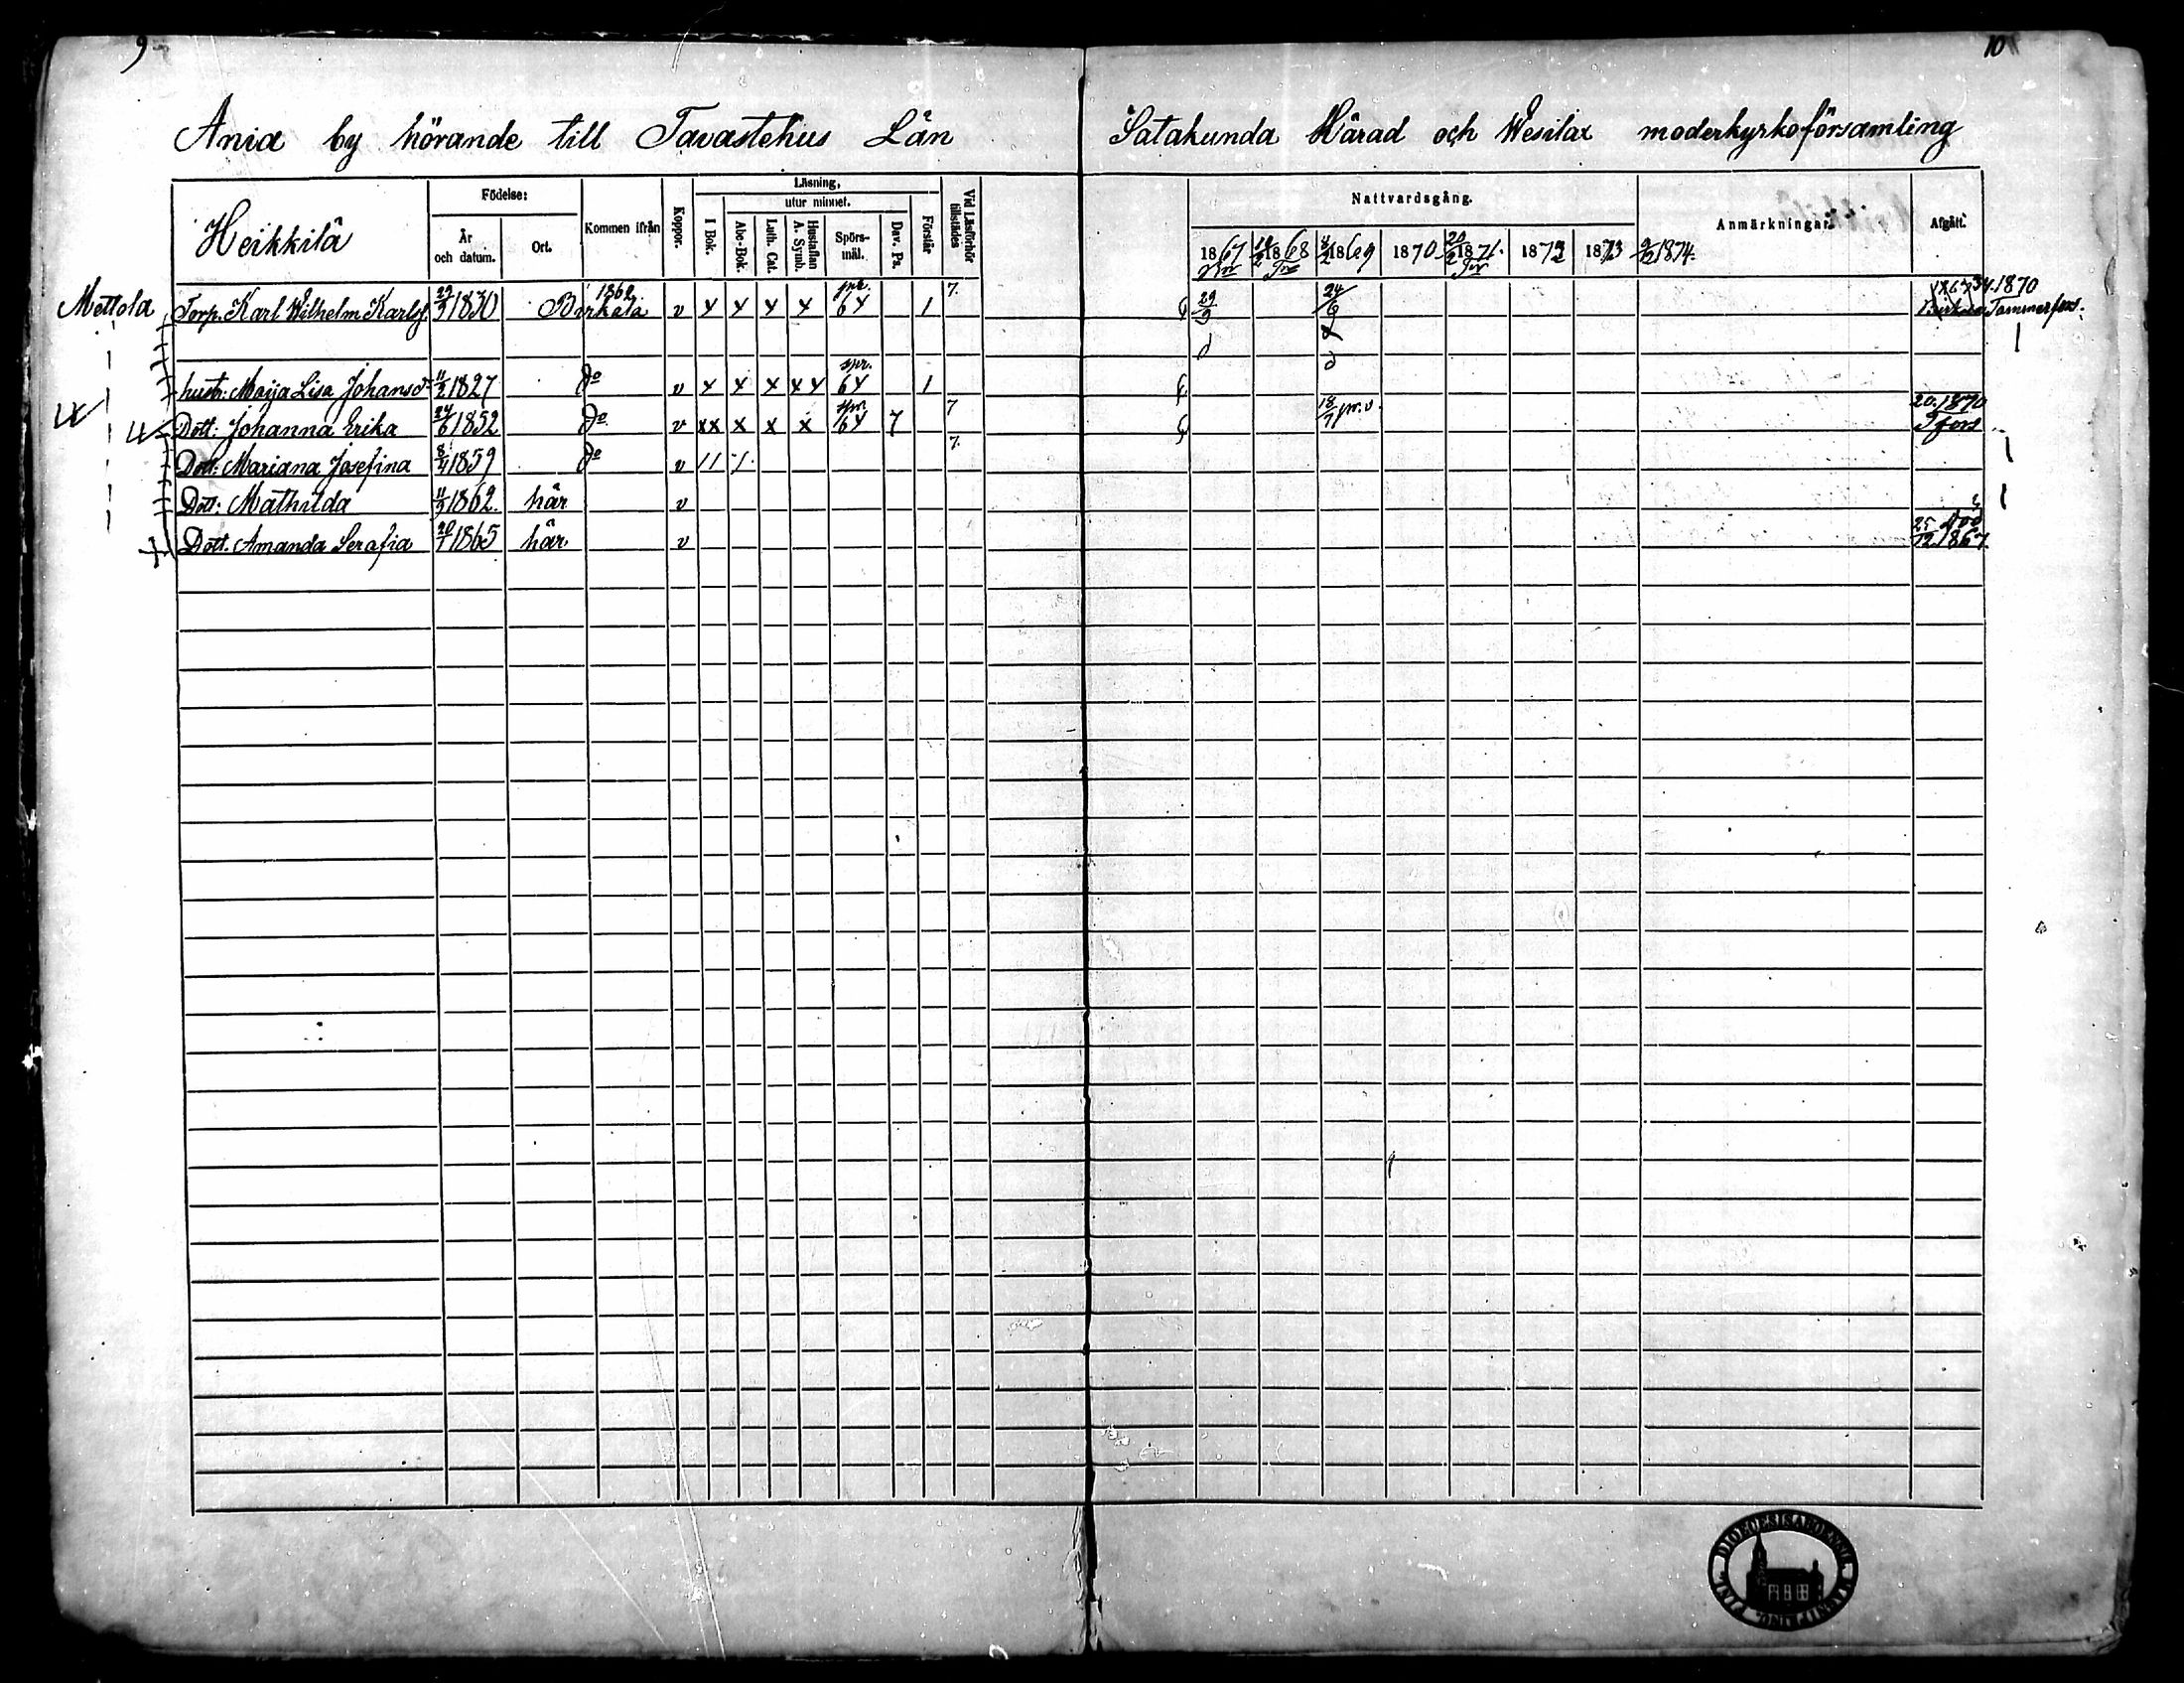 9
10
Ania by hörande till Tavastehus Län
Satakunda Härad och Wesilax moderkyrkoförsamling
Heikkilä
Födelse:
År och datum.
Ort.
Kommen ifrån
Koppor.
Läsning,
utur minnet.
I Bok.
Abc-Bok.
Luth. Cat.
Hustaflan A. Symb.
Spörsmål.
Dav. Ps.
Förstår
Vid Läsförhör tillstädes
Nattvardsgång.
1867 18/2 1868 1869 1870 20/2 1871. 1872 1873 9/2 1874.
Anmärkningar.
Afgått.
Mettola Torp. Karl Wilhelm Karlss. 1830 1862 Birkala v x x x x spr. 64 1 7. 29/9 24/6 1870 Tammerfors.
hustr. Maija Lisa Johansd. 11/2 1827 do v x x x xx spr. 64 1
Dott: Johanna Erika 24/6 1852 do v xx x x x spr. 64 7 7 18/7 20. 1870 Tfors
Dott: Mariana Josefina 8/4 1859 do v 11 7.
Dott: Mathilda 11/9 1862. här v
Dott. Amanda Serafia 20/1 1865 här v död 25/12 1867.